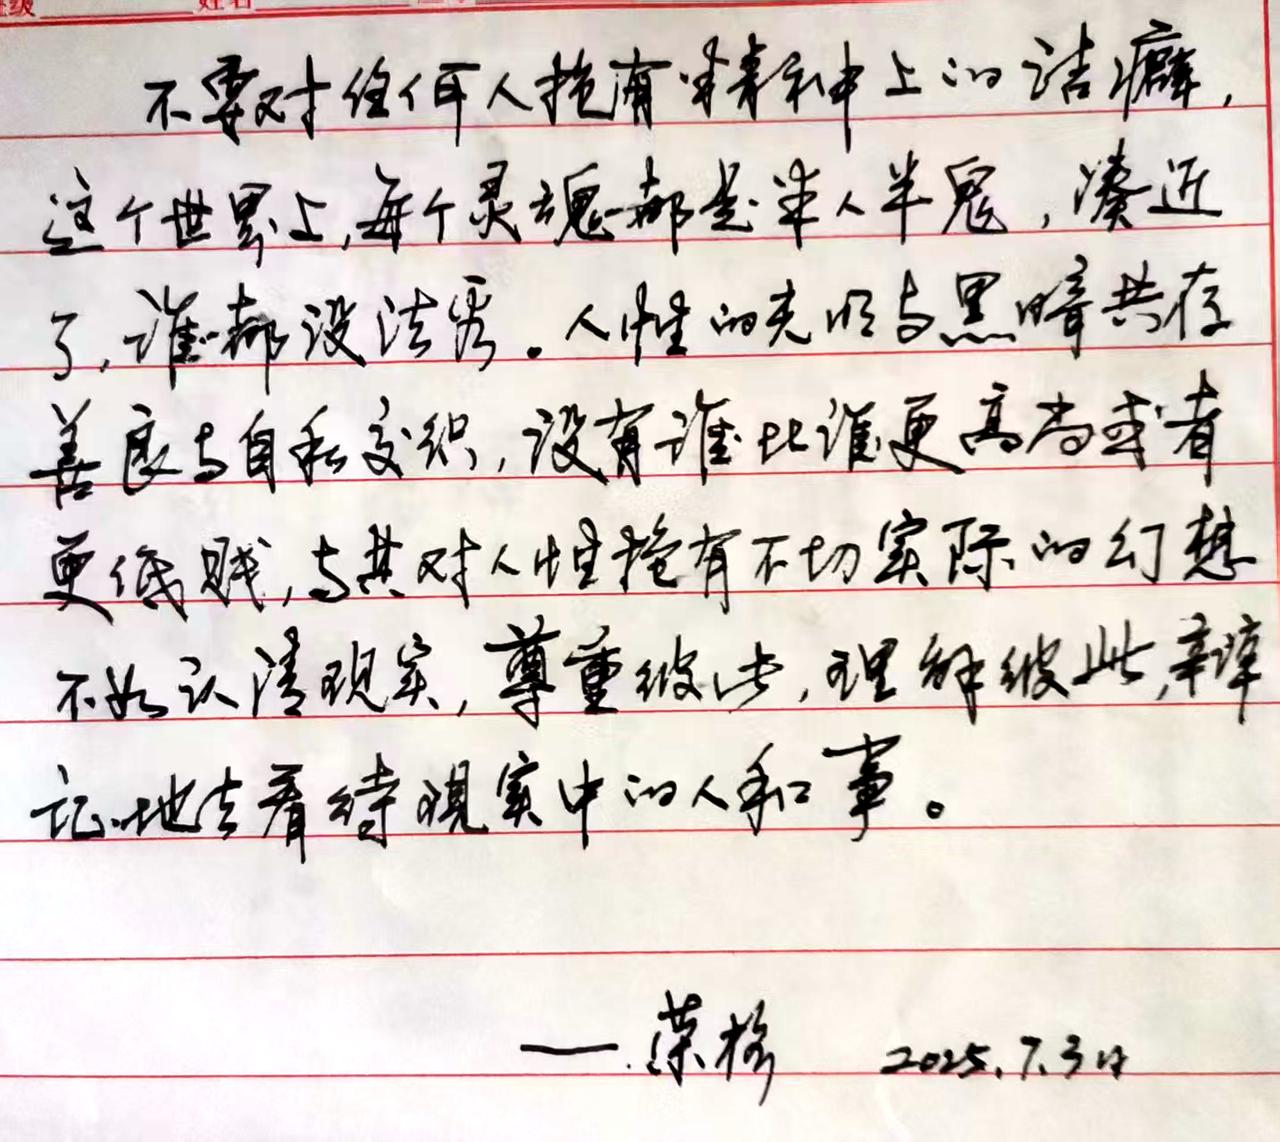 班级 姓名
不要对任何人抱有精神上的洁癖，
这个世界上，每个灵魂都是半人半鬼，凑近
了，谁都没法看。人性的光明与黑暗共存
善良与自私交织，没有谁比谁更高尚或者
更低贱，与其对人性抱有不切实际的幻想
不如认清现实，尊重彼此，理解彼此，辩
证地去看待现实中的人和事。
——荣格 2025.7.3日